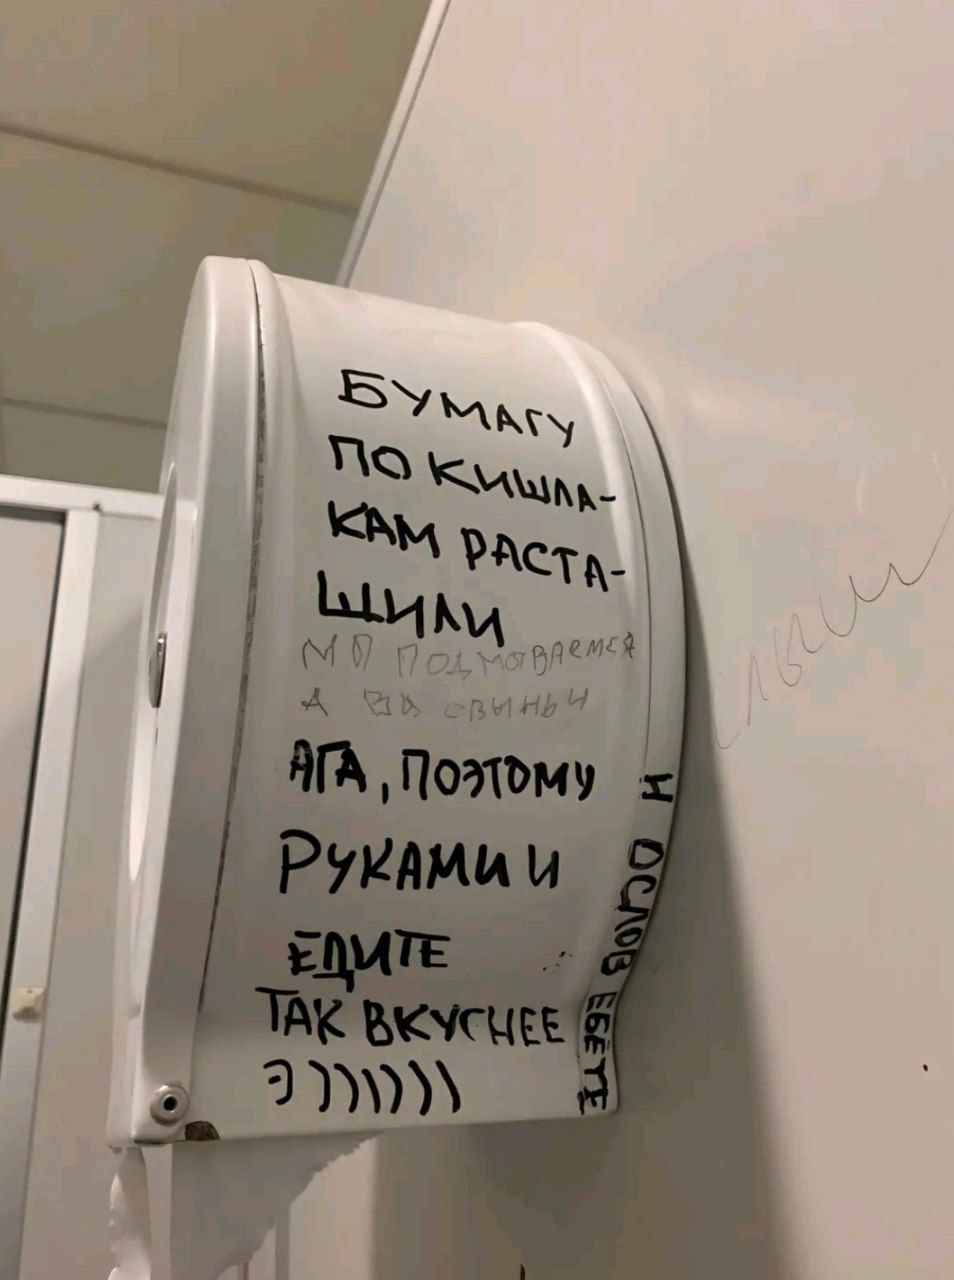 БУМАГУ
ПО КИШЛА-
КАМ РАСТА-
ЩИЛИ
МЫ ПОДМЫВАЕМСЯ
А ВЫ СВИНЬИ
АГА, ПОЭТОМУ
РУКАМИ И
ЕДИТЕ
ТАК ВКУСНЕЕ
Э))))))
И ОСЛОВ ЕБЁТЕ